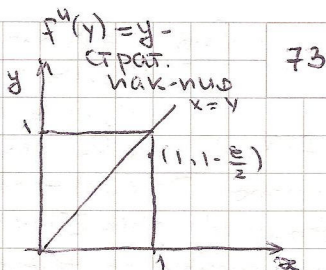 f^u(y) = y -
страт.
нак-пио
73
y
x = y
1
(1, 1 - ε/2)
1
x